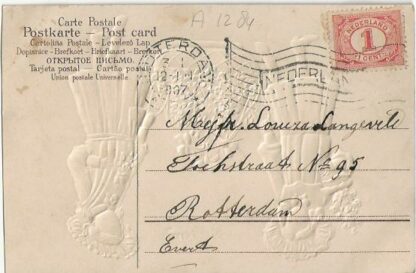 Carte Postale
Postkarte – Post card
Cartolina Postale – Levelező Lap
Dopisnice – Brefkort – Briefkaart – Brevkort
ОТКРЫТОЕ ПИСЬМО.
Tarjeta postal – Cartão postal
Union postale Universelle.
A 1284
NEDERLAND
1
CENT
Mejfr. Louiza Langeveld
Tochstraat No 95
Rotterdam
Evert